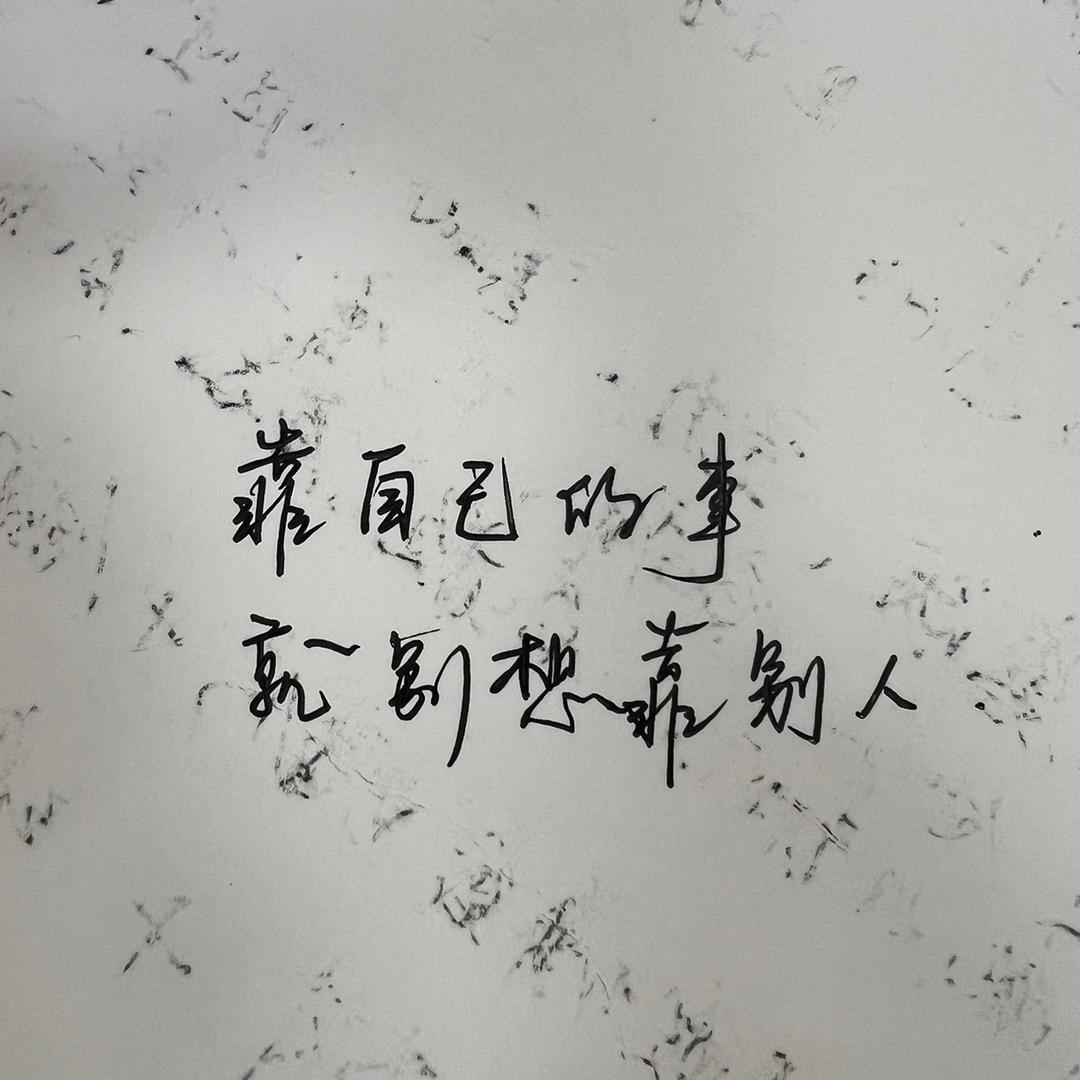 靠自己的事
就别想靠别人